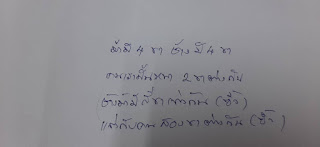 ม้ามี 4 ขา ช้าง มี 4 ขา
คนเรานั้นหนา 2 ขาต่างกัน
ช้างม้ามีสี่ขาเท่ากัน (ซ้ำ)
แต่กับคนสองขาต่างกัน (ซ้ำ)